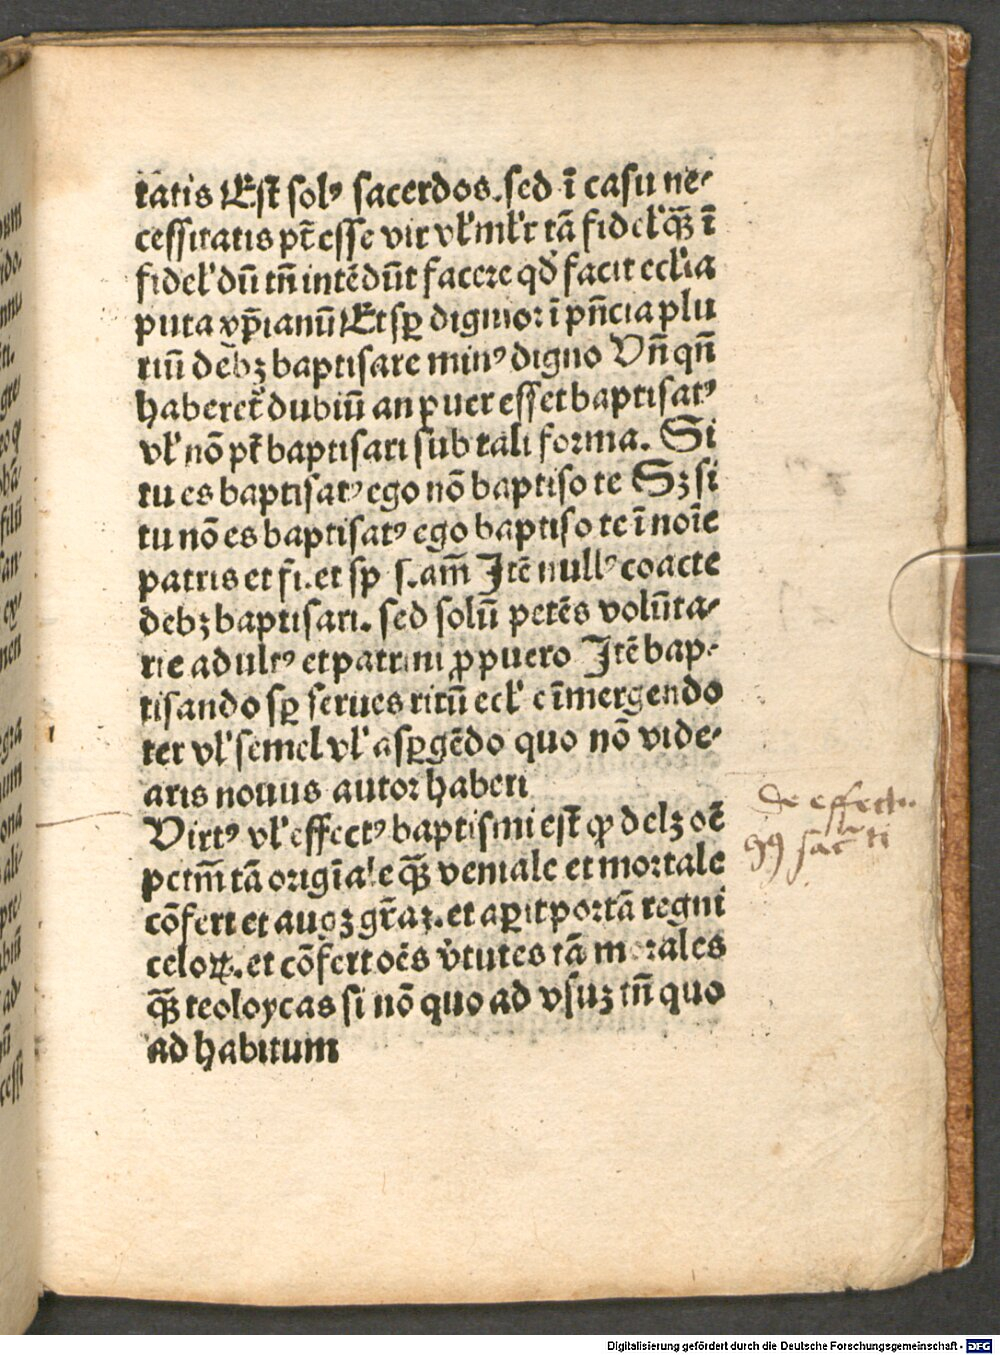 tatis Est solꝰ sacerdos. sed ī casu ne⸗
cessitatis pt̄ esse vir vl' ml'r tā fidel' qȝ̄ ī
fidel' dū tn̄ intēdūt facere qđ facit eccl'ia
puta xp̄ianū Et sꝑ dignior ī pn̄cia plu
riū debȝ baptisare minꝰ digno Vn̄ qn̄
haberet̄ dubiū an puer esset baptisatꝰ
vl' nō pt̄ baptisari sub tali forma. Si
tu es baptisatꝰ ego nō baptiso te Sȝ si
tu nō es baptisatꝰ ego baptiso te ī noīe
patris et fi. et sp s. am̄ Itē nullꝰ coacte
debȝ baptisari. sed solū petēs volūta⸗
rie adultꝰ et patrini ꝓ puero Itē bap⸗
tisando sꝑ serues ritū eccl' e īmergendo
ter vl' semel vl' aspgēdo quo nō vide⸗
aris nouus autor haberi
Virtꝰ vl' effectꝰ baptismi est̄ ꝙ delȝ oē
pctm̄ tā origīale qȝ̄ veniale et mortale
cōfert et augȝ gr̄aȝ. et aperit portā regni
celoꝝ. et cōfert oēs v̓tutes tā morales
qȝ̄ teoloycas si nō quo ad vsuȝ tn̄ quo
ad habitum
de effectu
Digitalisierung gefördert durch die Deutsche Forschungsgemeinschaft - DFG